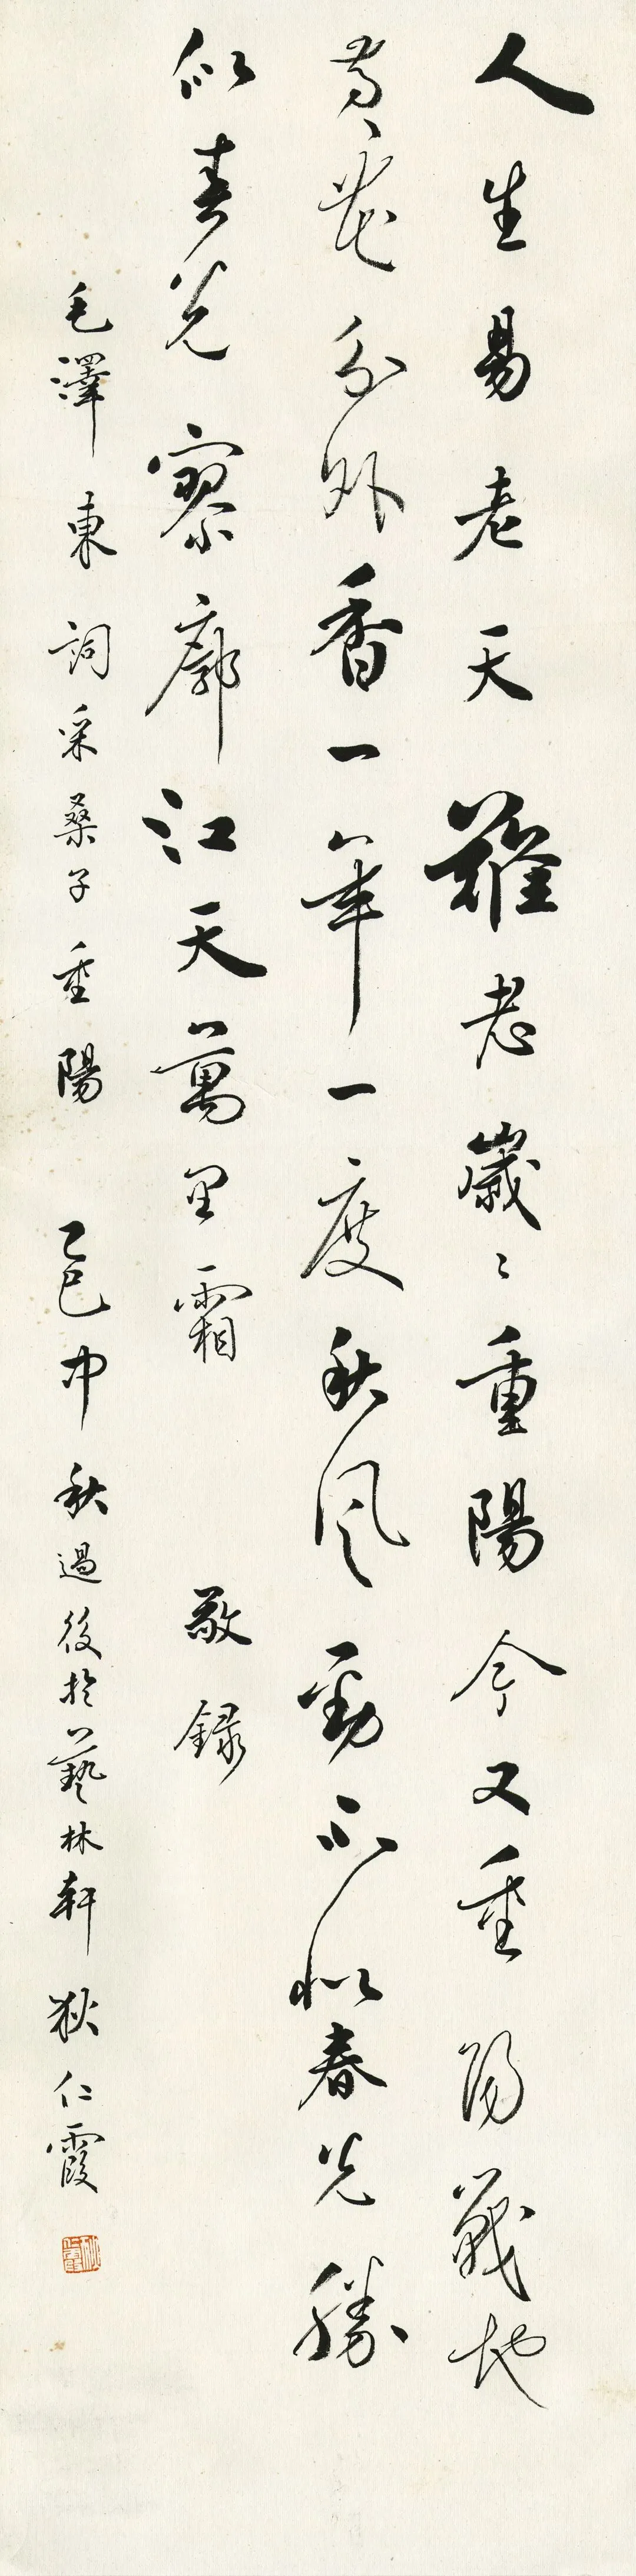 人生易老天難老歲〻重陽今又重陽戰地
黄花分外香一年一度秋風勁不似春光勝
似春光寥廓江天萬里霜 敬錄
毛澤東詞采桑子重陽 乙巳中秋過後於藝林軒狄仁霞